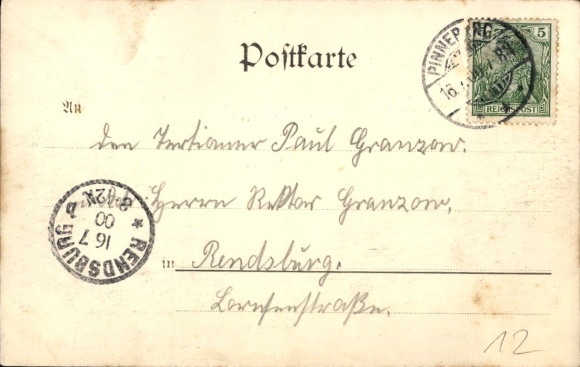 Postkarte
PINNEBERG
16.7.00
5
REICHSPOST
An
den Tertianer Paul Granzow.
Herrn Rektor Granzow,
in Rendsburg.
Lornsenstraße.
RENDSBURG
16 7
00
8-12N
12